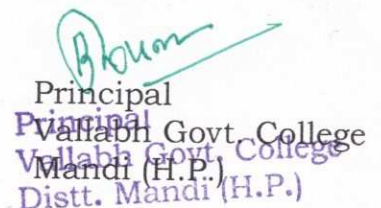 Principal
Vallabh Govt. College
Mandi (H.P.)
Principal
Vallabh Govt. College
Distt. Mandi (H.P.)